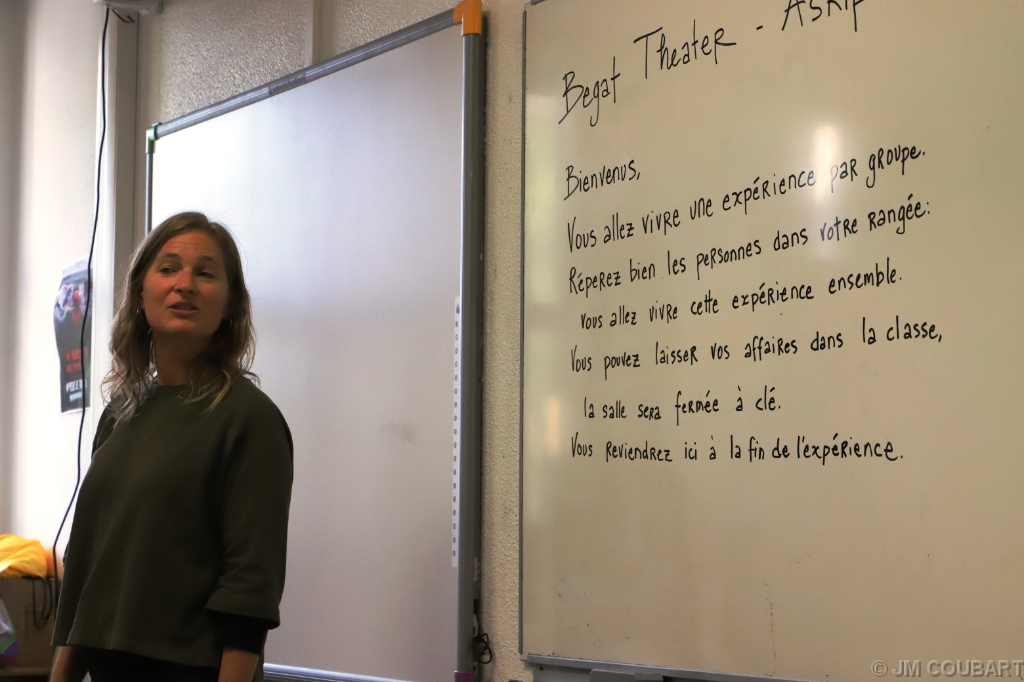 Begat Theater - Askip
Bienvenus,
Vous allez vivre une expérience par groupe.
Réperez bien les personnes dans votre rangée:
vous allez vivre cette expérience ensemble.
Vous pouvez laisser vos affaires dans la classe,
la salle sera fermée à clé.
Vous reviendrez ici à la fin de l'expérience.
© JM COUBART